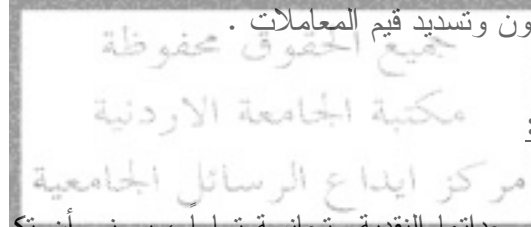 ون وتسديد قيم المعاملات .
جميع الحقوق محفوظة
مكتبة الجامعة الاردنية
مركز ايداع الرسائل الجامعية
النقدية